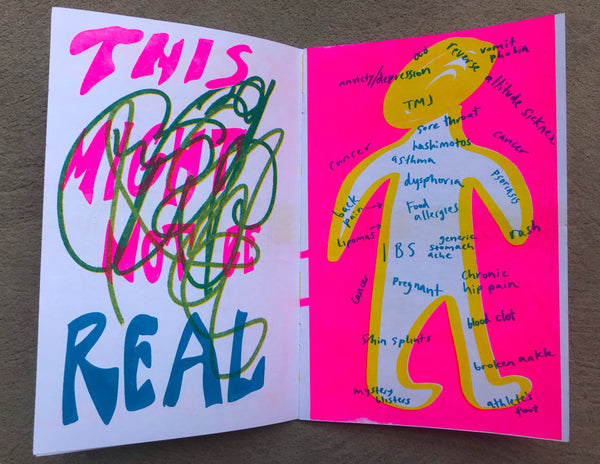 THIS
MIGHT
NOT BE
REAL
OCD
reverse
vomit
phobia
anxiety/depression
altitude sickness
TMJ
sore throat
hashimotos
cancer
cancer
asthma
dysphoria
psoriasis
back
pain →
Food
allergies
rash
lipomas →
IBS
generic
stomach
ache
cancer
Pregnant
Chronic
hip pain
blood clot
Shin splints
broken ankle
mystery
blisters
athlete's
foot